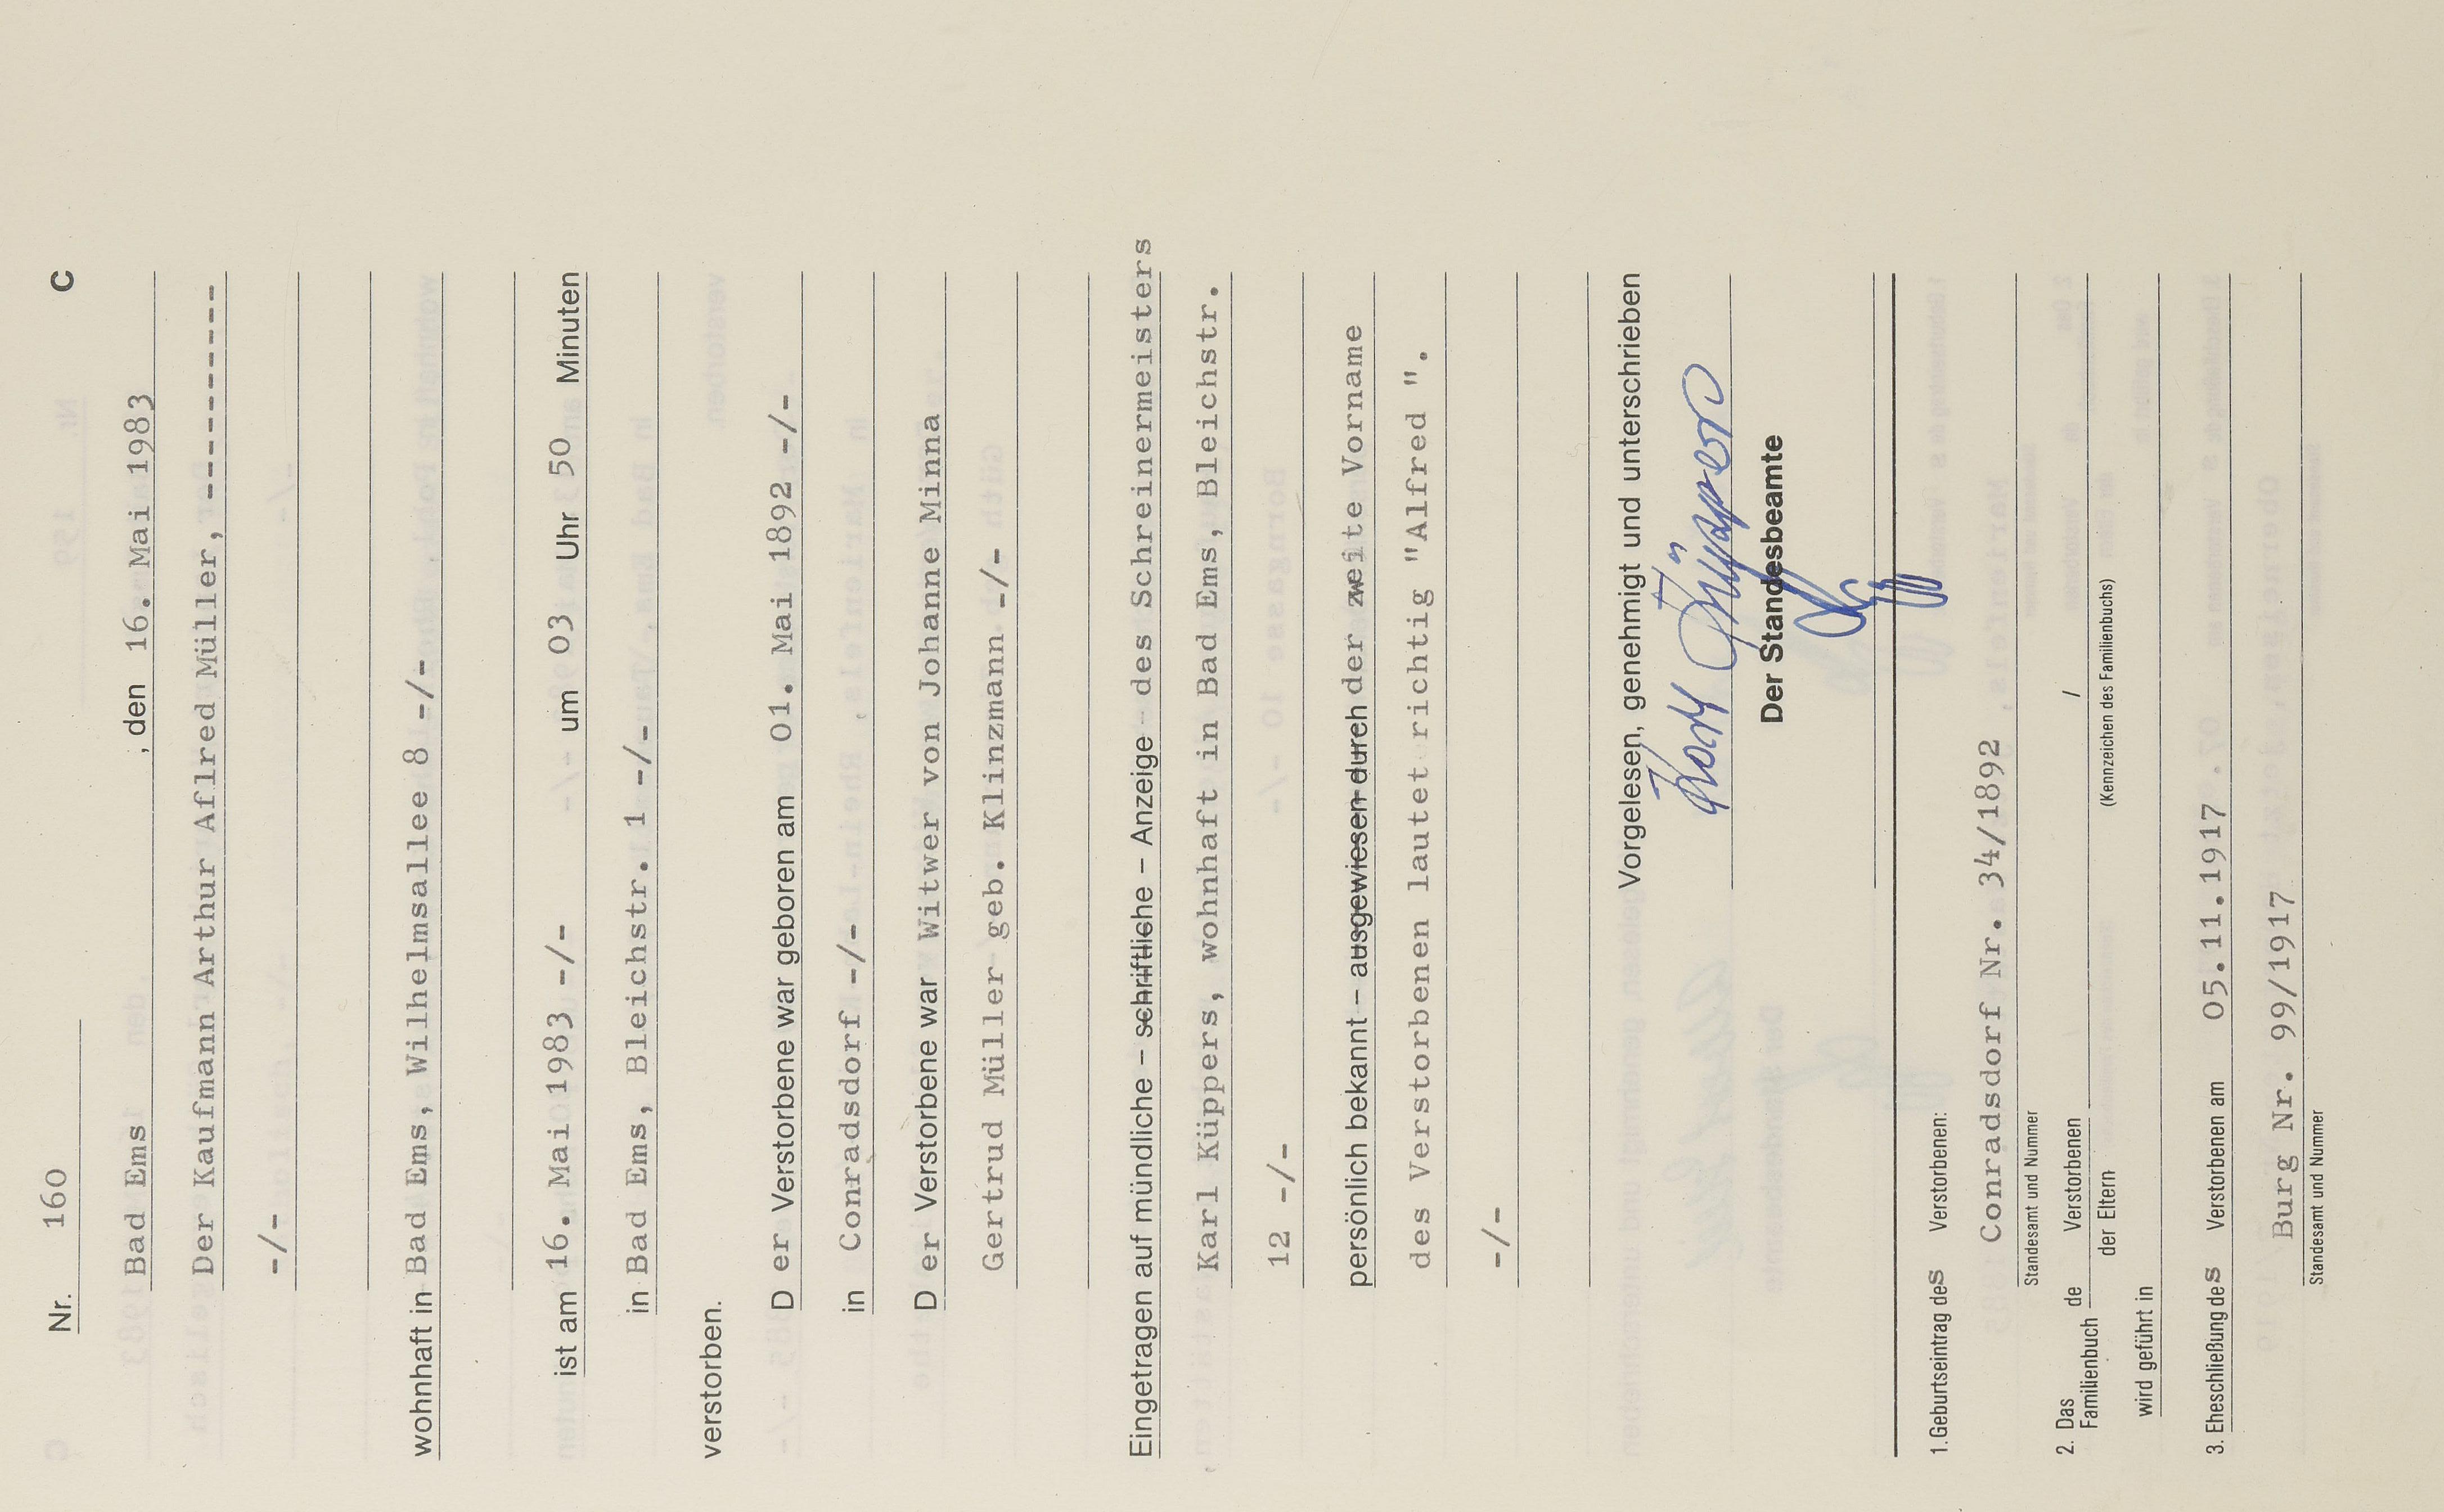 Nr. 160 C
Bad Ems , den 16. Mai 1983
Der Kaufmann Arthur Aflred Müller, ----------
-/-
wohnhaft in Bad Ems, Wilhelmsallee 8 -/-
ist am 16. Mai 1983 -/- um 03 Uhr 50 Minuten
in Bad Ems, Bleichstr. 1 -/-
verstorben.
D er Verstorbene war geboren am 01. Mai 1892 -/-
in Conradsdorf -/-
D er Verstorbene war Witwer von Johanne Minna
Gertrud Müller geb. Klinzmann -/-
Eingetragen auf mündliche – schriftliche – Anzeige des Schreinermeisters
Karl Küppers, wohnhaft in Bad Ems, Bleichstr.
12 -/-
persönlich bekannt – ausgewiesen durch der zweite Vorname
des Verstorbenen lautet richtig "Alfred ".
-/-
Vorgelesen, genehmigt und unterschrieben
Karl Küppers
Der Standesbeamte
1. Geburtseintrag des Verstorbenen:
Conradsdorf Nr. 34/1892
Standesamt und Nummer
2. Das Familienbuch de Verstorbenen / der Eltern
(Kennzeichen des Familienbuchs)
wird geführt in
3. Eheschließung des Verstorbenen am 05.11.1917
Burg Nr. 99/1917
Standesamt und Nummer